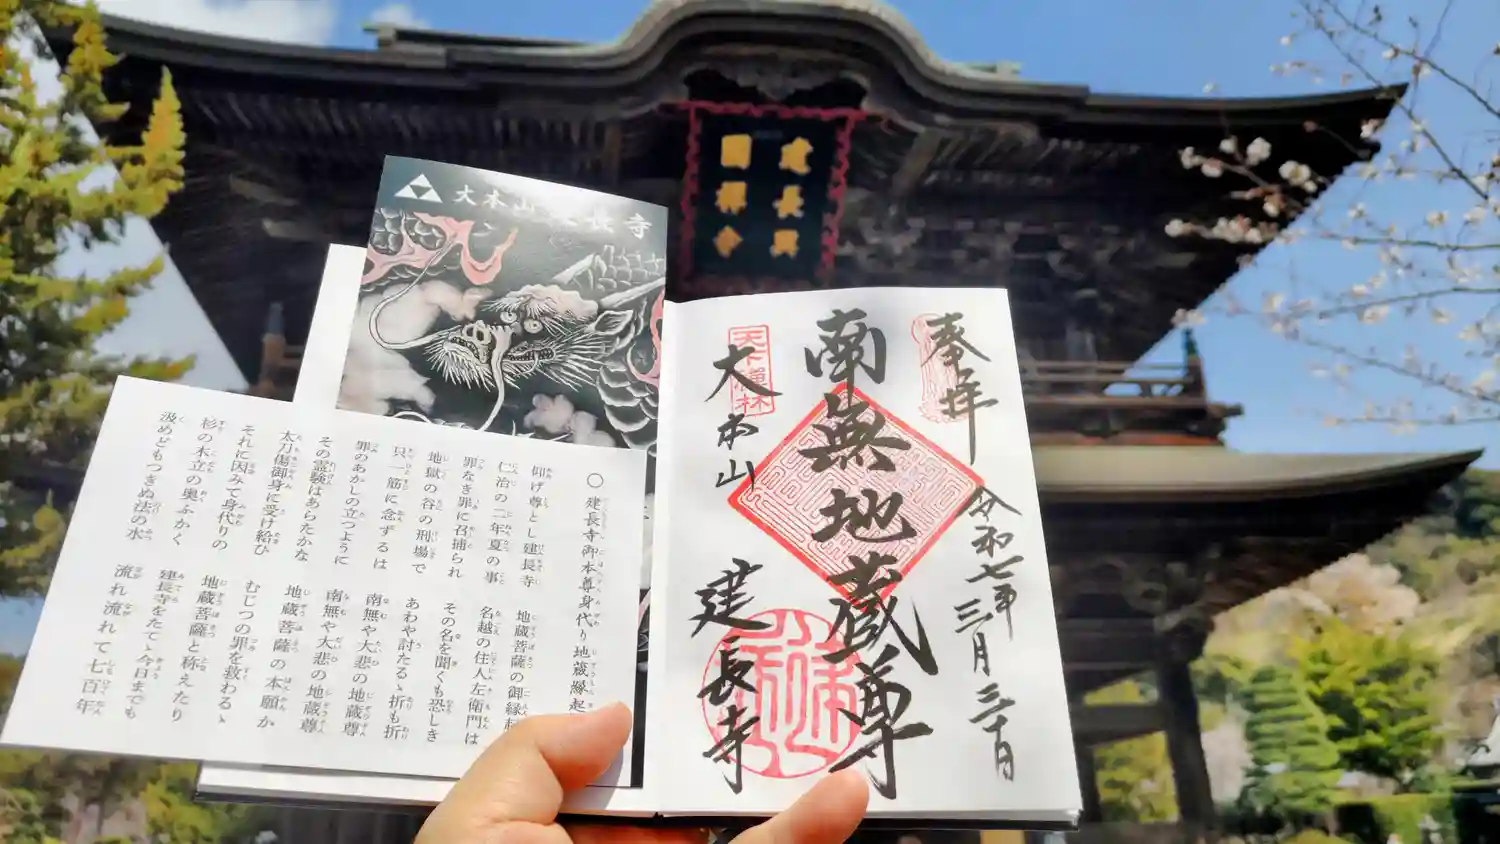 建長興
國禅寺
大本山 建長寺
奉拝
令和七年三月三十日
南無地蔵尊
天下禅林
大本山
建長寺
〇 建長寺御本尊身代り地蔵縁起
仰げ尊とし建長寺
仁治の二年夏の事
罪なき罪に召捕られ
地獄の谷の刑場で
只一筋に念ずるは
罪のあかしの立つように
その霊験はあらたかな
太刀傷御身に受け給ひ
それに因みて身代りの
杉の木立の奥ふかく
汲めどもつきぬ法の水
地蔵菩薩の御縁起
名越の住人左衛門は
その名を聞くも恐しき
あわや討たるゝ折も折
南無や大悲の地蔵尊
南無や大悲の地蔵尊
地蔵菩薩の本願か
むじつの罪を救わるゝ
地蔵菩薩と称えたり
建長寺をたてゝ今日までも
流れ流れて七百年